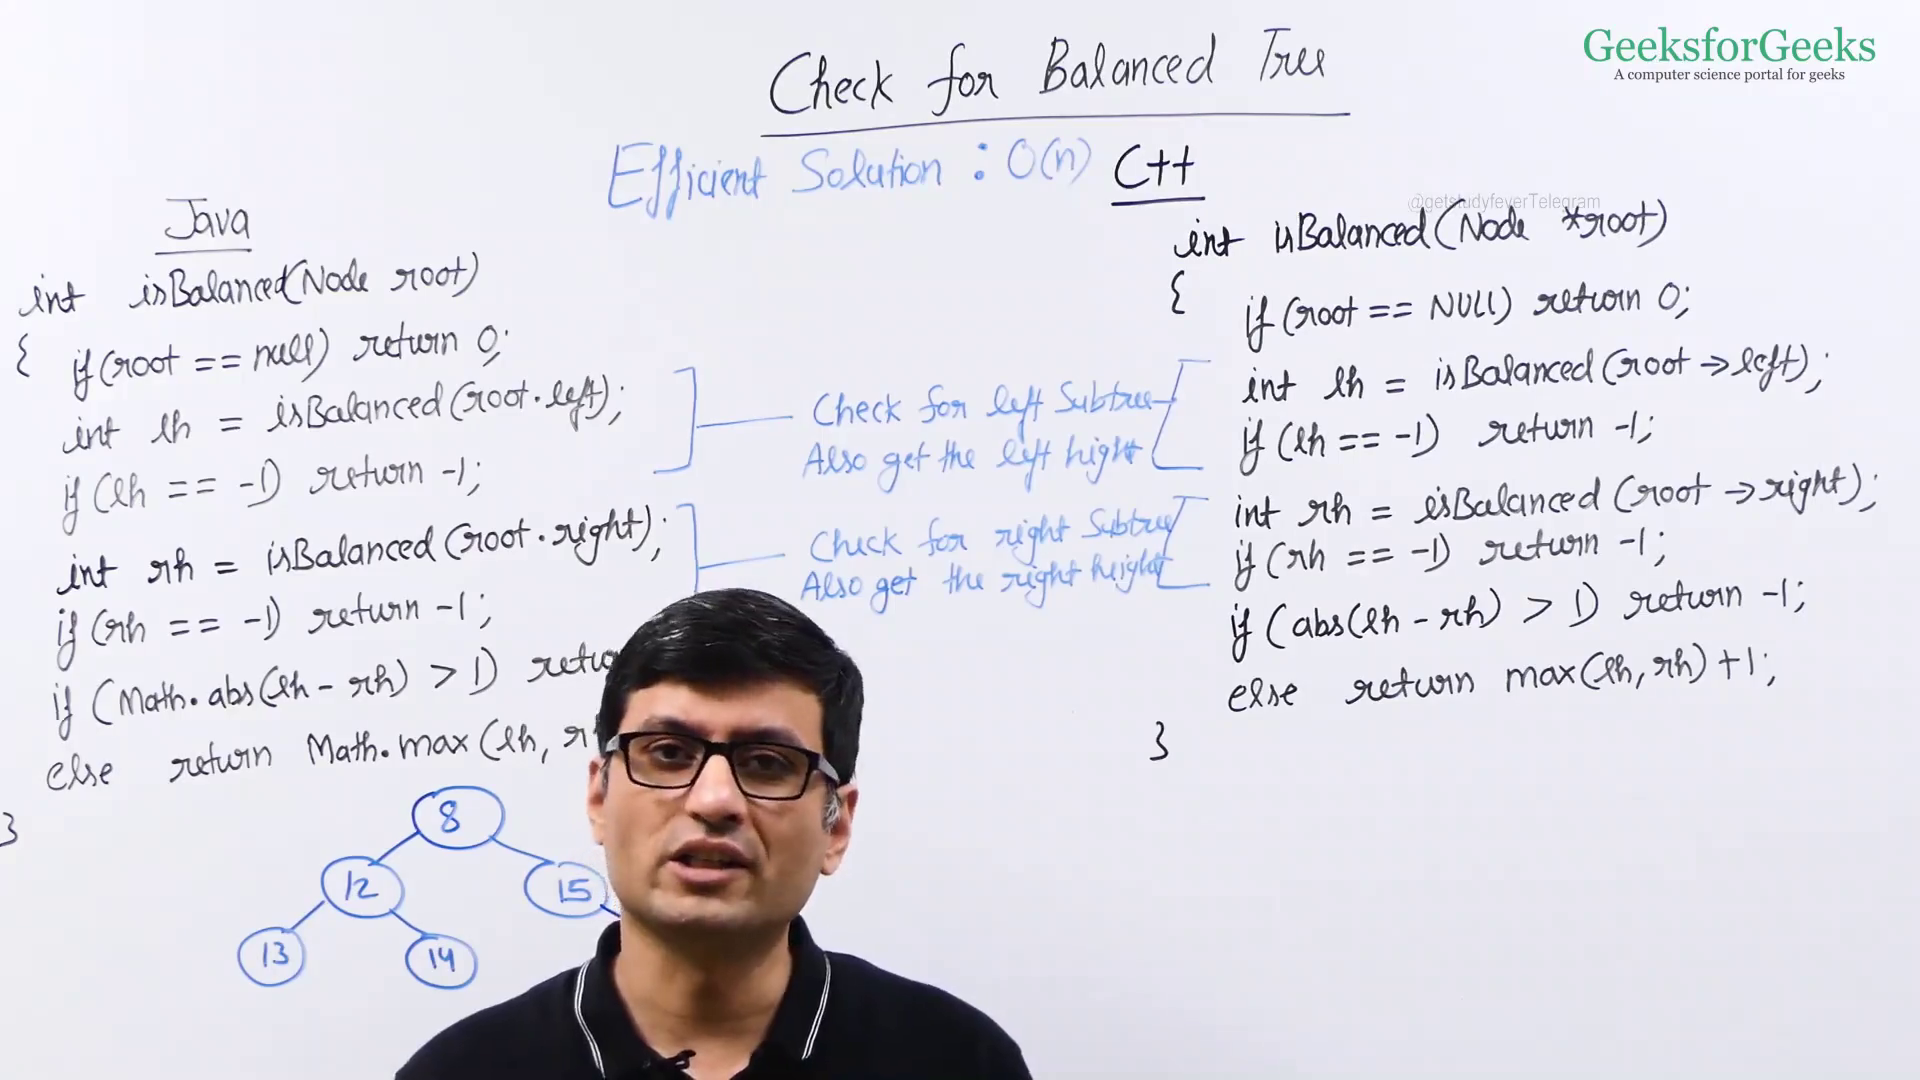 Check for Balanced Tree
GeeksforGeeks
A computer science portal for geeks
Efficient Solution : O(n)
Java
int isBalanced(Node root)
{ if(root == null) return 0;
int lh = isBalanced(root.left);
if(lh == -1) return -1;
int rh = isBalanced(root.right);
if(rh == -1) return -1;
if (Math.abs(lh - rh) > 1)
else return Math.max(lh,
}
Check for left Subtree
Also get the left hight
Check for right Subtree
Also get the right height
C++
@getstudyfeverTelegram
int isBalanced(Node *root)
{
if(root == NULL) return 0;
int lh = isBalanced(root->left);
if(lh == -1) return -1;
int rh = isBalanced(root->right);
if(rh == -1) return -1;
if(abs(lh - rh) > 1) return -1;
else return max(lh, rh) +1;
}
8
12
15
13
14